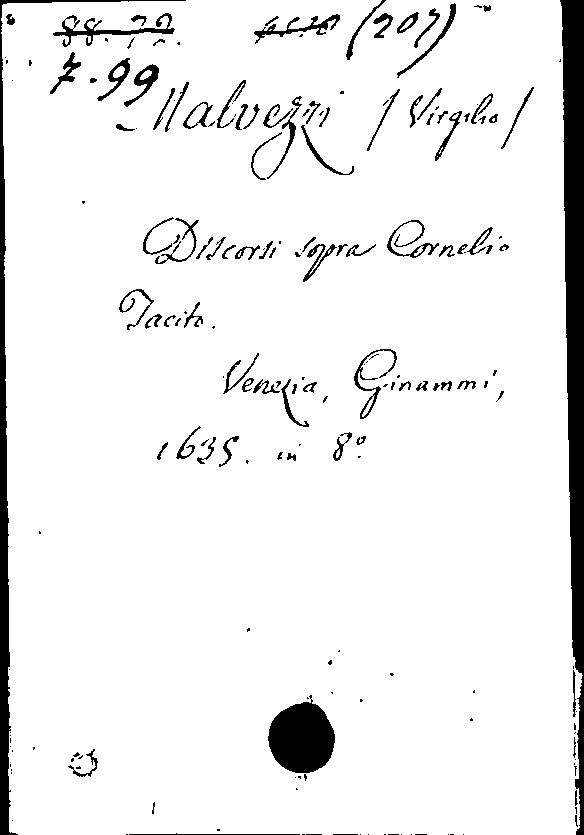 88.72. (207)
7.99
Malvezzi / Virgilio /
Discorsi sopra Cornelio
Tacito.
Venezia, Ginammi,
1635. in 8º.